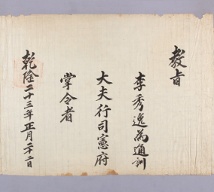 教旨
李秀逸為通訓
大夫行司憲府
掌令者
乾隆二十三年正月二十二日